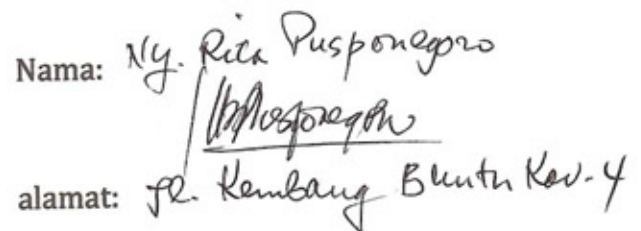 Nama: Ny. Rita Pusponegoro
alamat: Jl. Kembang Buntu Kav. 4